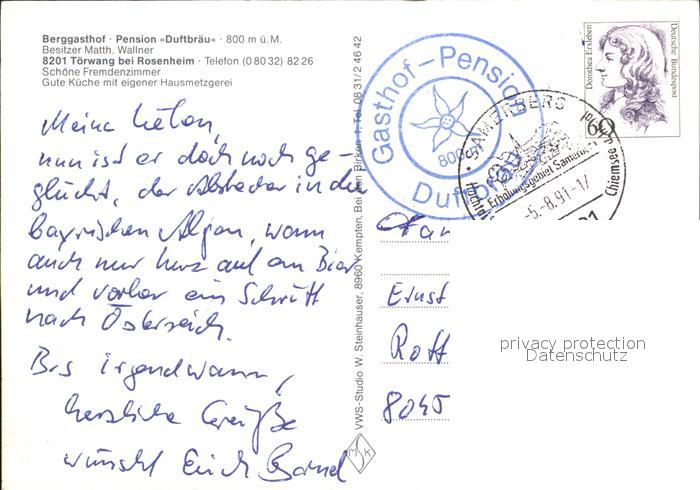 Berggasthof · Pension »Duftbräu« · 800 m ü. M.
Besitzer Matth. Wallner
8201 Törwang bei Rosenheim · Telefon (0 80 32) 82 26
Schöne Fremdenzimmer
Gute Küche mit eigener Hausmetzgerei
Meine Lieben,
nun ist er doch noch ge-
glückt, der Abstecher in die
Bayrischen Alpen, wenn
auch nur kurz auf ein Bier
und vorher ein Schritt
nach Österreich.
Bis irgendwann,
herzliche Grüße
wünscht Euch Bernd
VWS-Studio W. Steinhauser, 8960 Kempten, Bei den Birken 1, Tel. 08 31/2 46 42
MSK
Gasthof-Pension
800 m
Duftbräu
Dorothea Erxleben
Deutsche Bundespost
60
SAMERBERG
Erholungsgebiet Samerberg
-5.-8.91-17
Chiemsee
Fam
Ernst
Rott
8045
privacy protection
Datenschutz